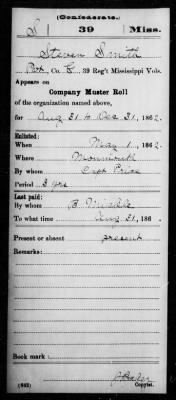 (Confederate.)
S 39 Miss.
Steven Smith
Pvt, Co. C, 39 Reg't Mississippi Vols.
Appears on
Company Muster Roll
of the organization named above,
for Aug 31 to Dec 31, 1862.
Enlisted:
When May 1, 1862.
Where Monmouth
By whom Capt Price
Period 3 yrs
Last paid:
By whom B.
To what time Aug 31, 186 .
Present or absent present
Remarks:
Book mark:
(642)
Copyist.